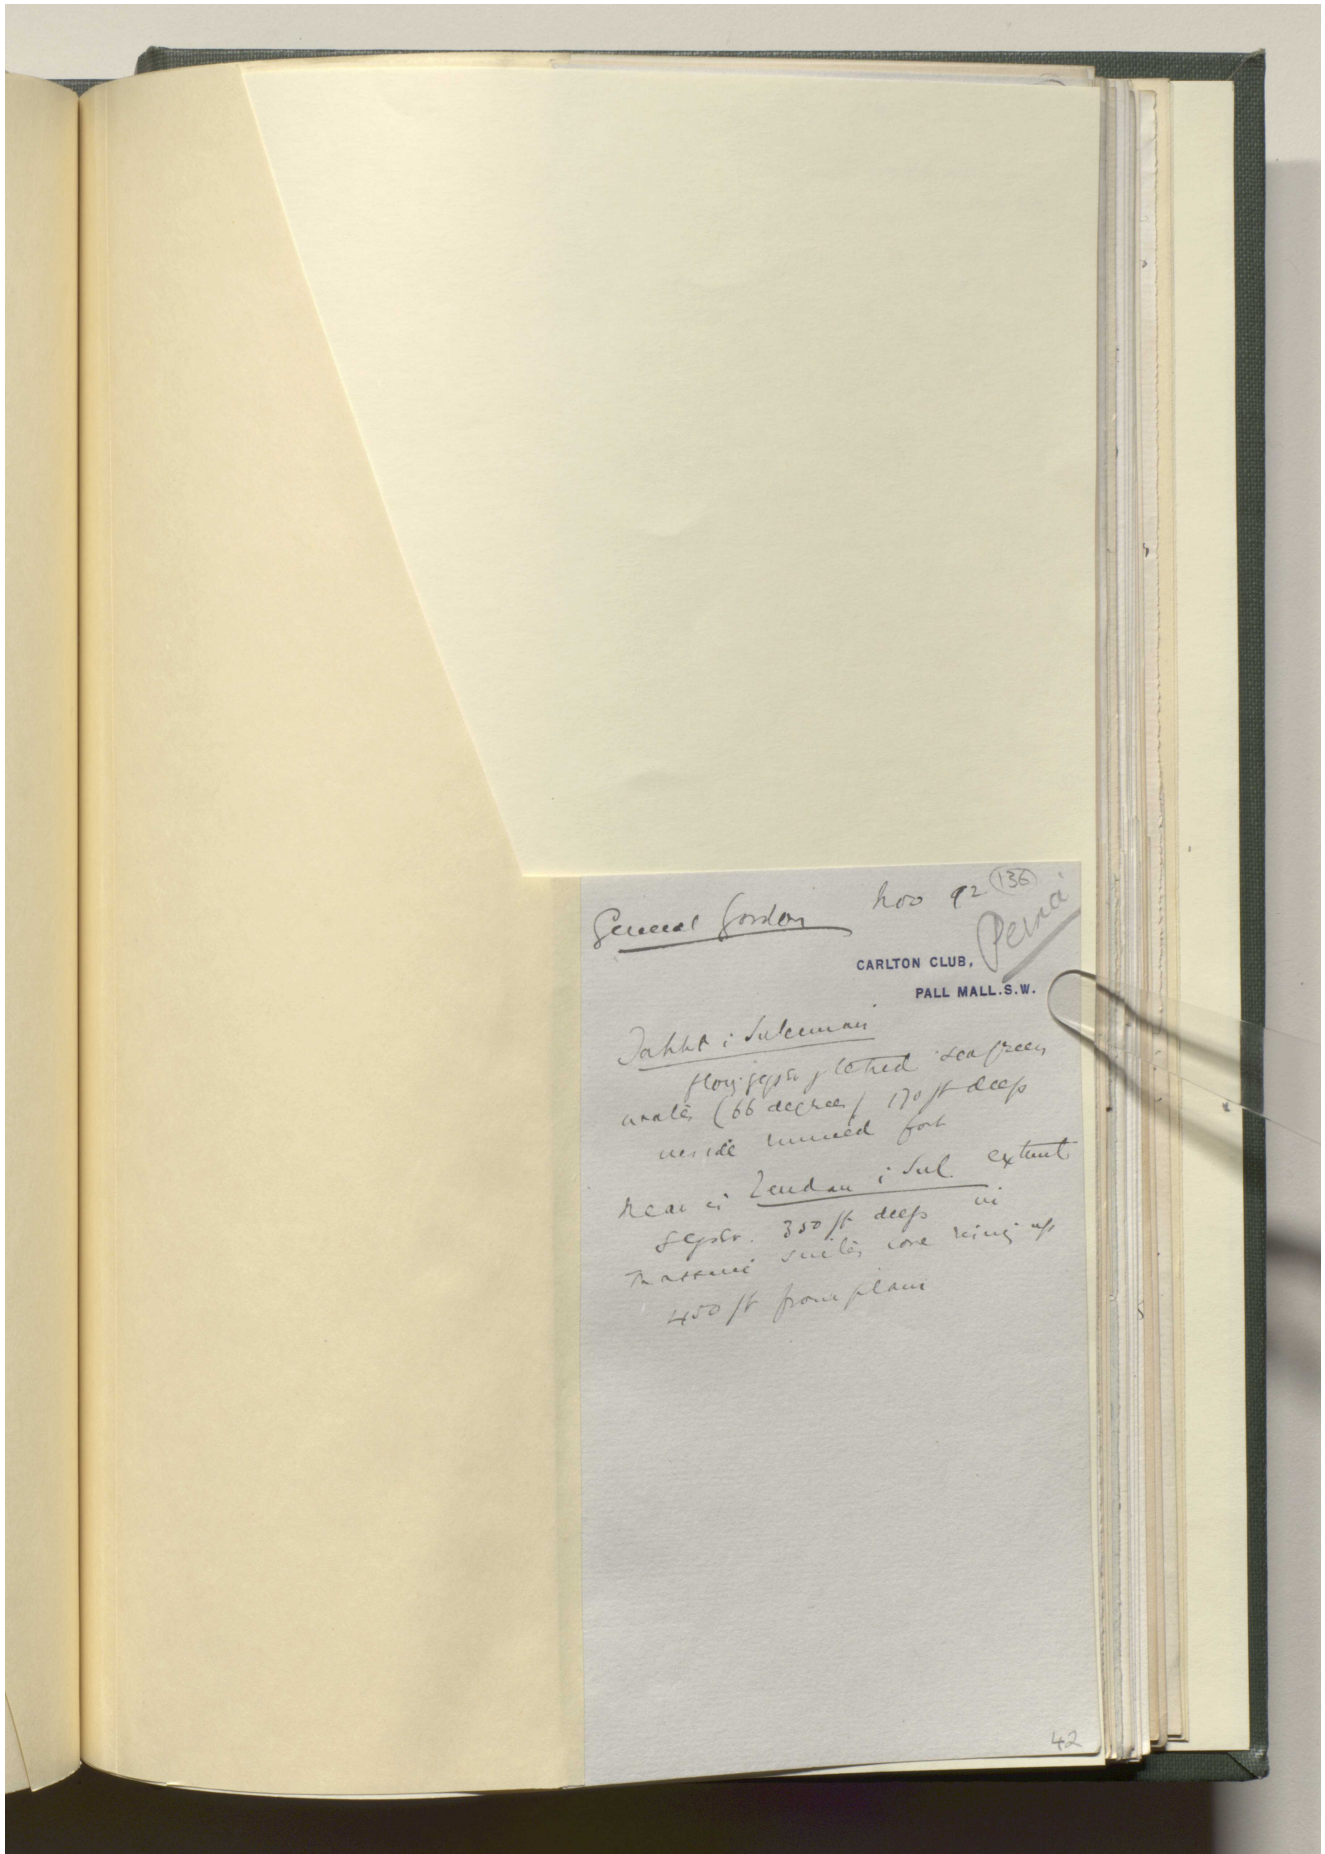 General Gordon Nov 92 136
Persia
CARLTON CLUB,
PALL MALL.S.W.
Takht i Suleiman
geyser of tepid sea green
water (66 degrees) 170 ft deep
inside ruined fort
Near is Zendan i Sul. extinct
geyser. 350 ft deep in
massive cone rising up
450 ft from plain
42